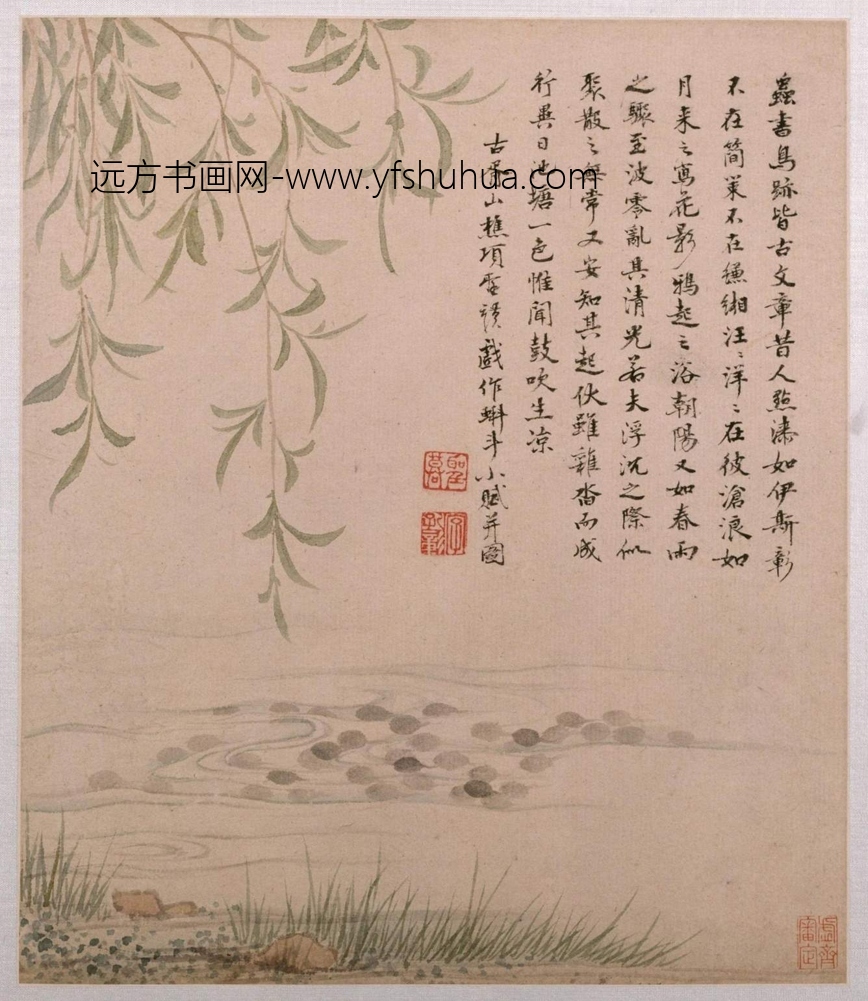 蟲書鳥跡皆古文章昔人點漆如伊斯彰
不在簡策不在縑緗汪〻洋〻在彼滄浪如
月来之寫花影鴉起之浴朝陽又如春雨
之驟至波零亂其清光若夫浮沉之際似
聚散之無常又安知其起伏雖雜沓而成
行異日池塘一色惟聞鼓吹生涼
古 山樵項聖謨戲作蝌斗小賦并圖
远方书画网-www.yfshuhua.com